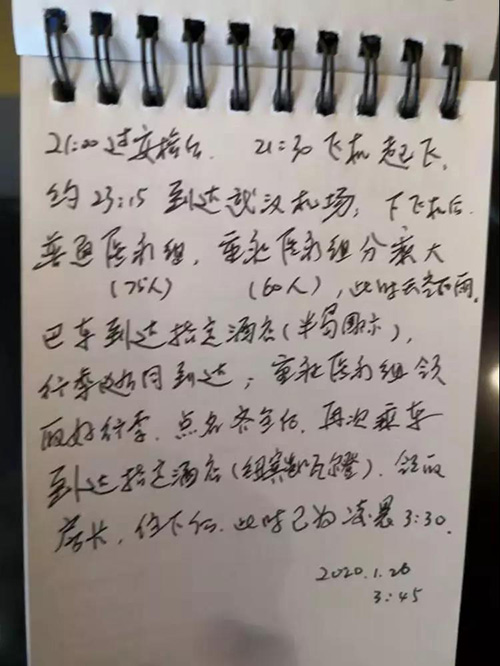 21:00过安检台. 21:30飞机起飞,
约23:15到达武汉机场, 下飞机后.
普通医疗组, 重症医疗组分乘大
(75人) (60人), 此时天空下雨.
巴车到达指定酒店(半岛国际),
行李随同到达, 重症医疗组领
取好行李. 点名签到后, 再次乘车
到达指定酒店(纽宾凯瓦尔登). 领取
房卡, 住下后. 此时已为凌晨3:30.
2020.1.26
3:45